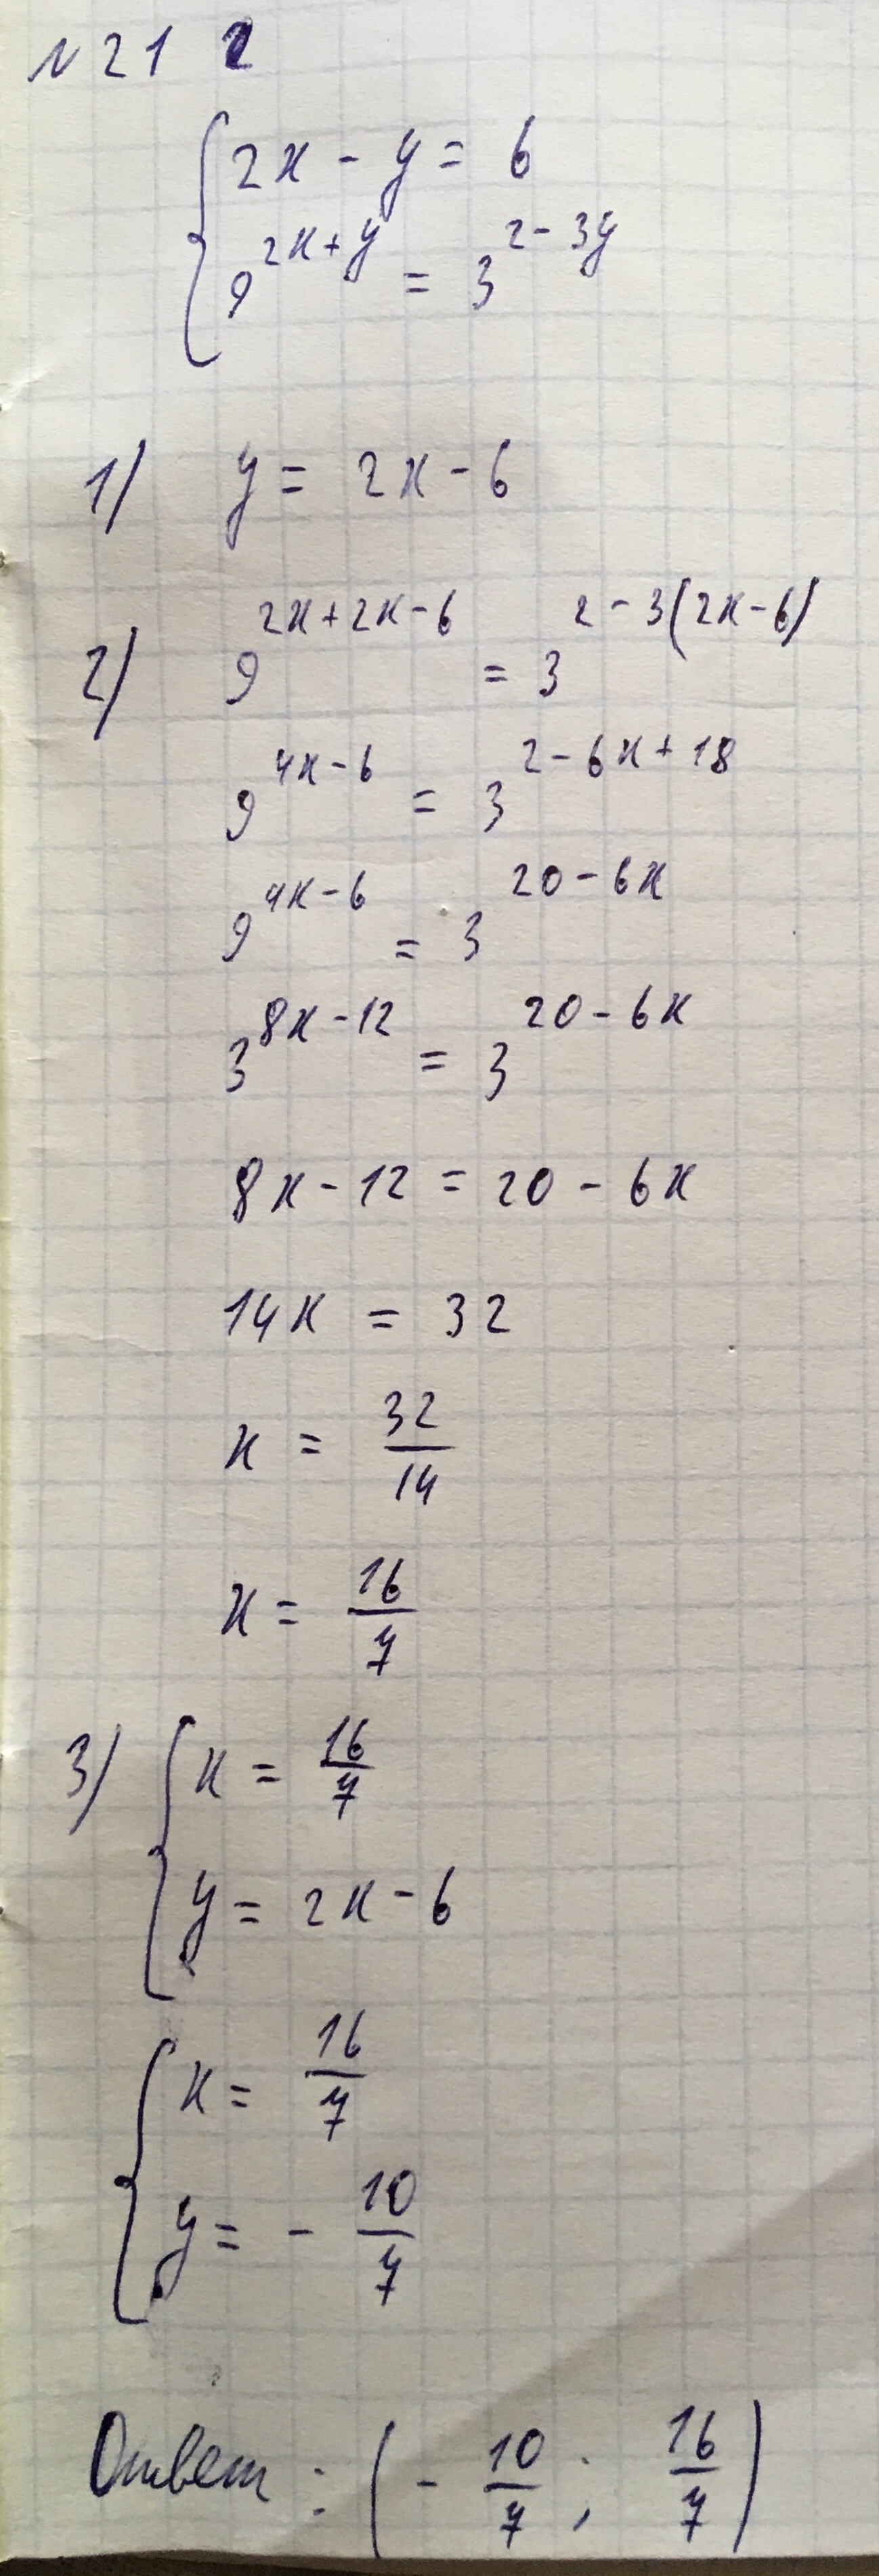 № 21 2
2x - y = 6
9^{2x+y} = 3^{2-3y}
1) y = 2x - 6
2) 9^{2x+2x-6} = 3^{2-3(2x-6)}
9^{4x-6} = 3^{2-6x+18}
9^{4x-6} = 3^{20-6x}
3^{8x-12} = 3^{20-6x}
8x - 12 = 20 - 6x
14x = 32
x = 32/14
x = 16/7
3) x = 16/7
y = 2x - 6
x = 16/7
y = - 10/7
Ответ : (- 10/7 ; 16/7)